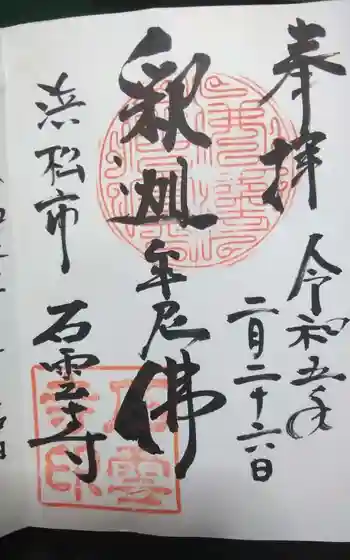 奉拝
令和五年
二月二十六日
釈迦牟尼佛
浜松市
石雲寺